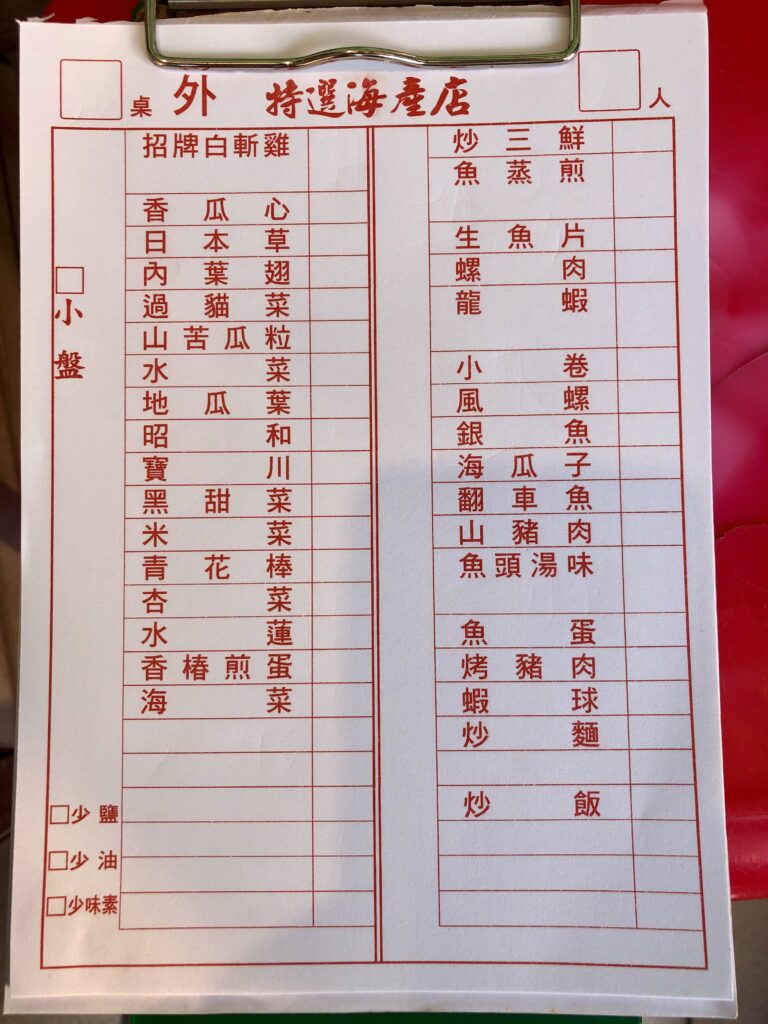 桌 外 特選海產店 人
小盤
招牌白斬雞
香瓜心
日本草
內葉翅
過貓菜
山苦瓜粒
水菜
地瓜葉
昭和
寶川
黑甜菜
米菜
青花棒
杏菜
水蓮
香椿煎蛋
海菜
少鹽
少油
少味素
炒三鮮
魚蒸煎
生魚片
螺肉
龍蝦
小卷
風螺
銀魚
海瓜子
翻車魚
山豬肉
魚頭湯味
魚蛋
烤豬肉
蝦球
炒麵
炒飯